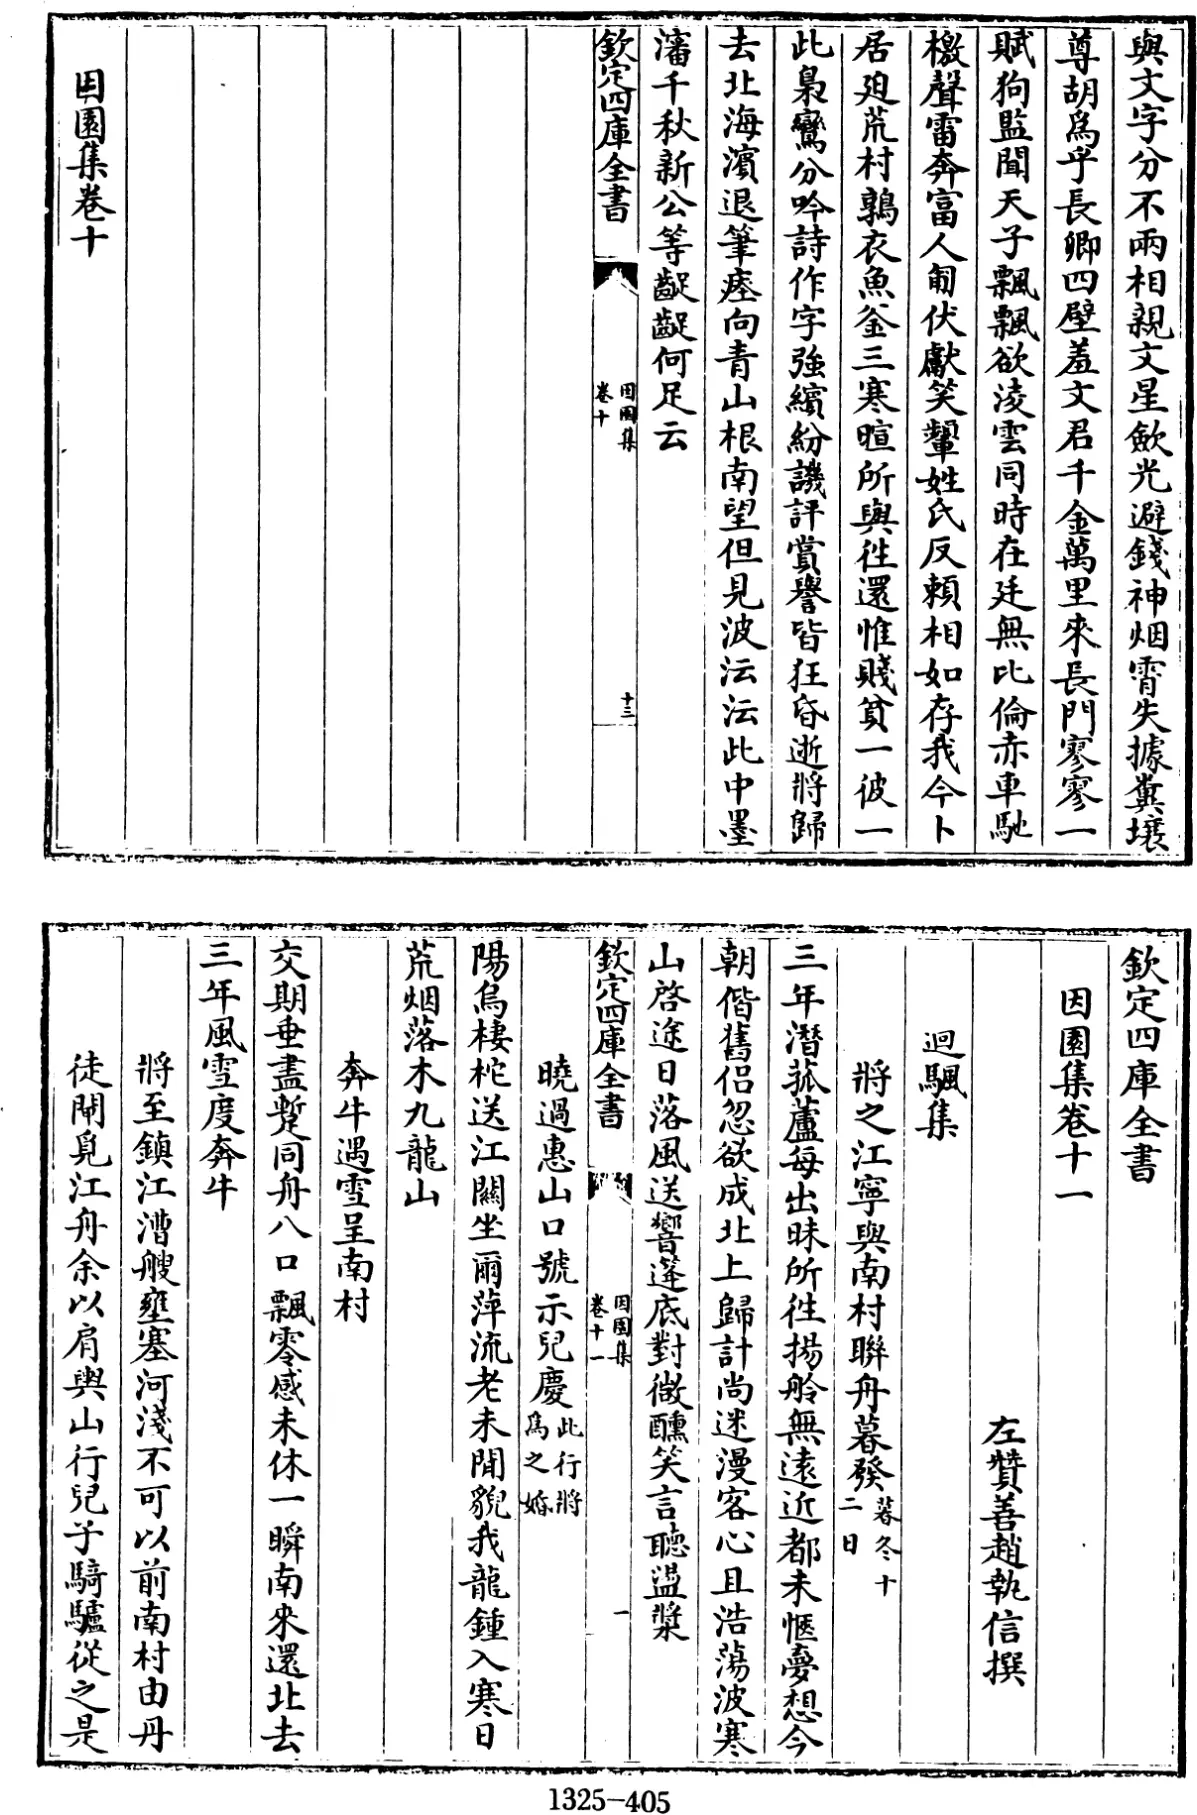 與文字分不兩相親文星斂光避錢神烟霄失據糞壤
尊胡為乎長卿四壁羞文君千金萬里來長門寥寥一
賦狗監聞天子飄飄欲淩雲同時在廷無比倫赤車馳
檄聲雷奔富人匍伏獻笑顰姓氏反賴相如存我今卜
居廹荒村鶉衣魚釜三寒暄所與徃還惟賤貧一彼一
此梟鸞分吟詩作字強繽紛譏評賞譽皆狂昏逝將歸
去北海濱退筆瘞向青山根南望但見波沄沄此中墨
瀋千秋新公等齪齪何足云
欽定四庫全書
因園集
卷十
十三
因園集卷十
欽定四庫全書
因園集卷十一
左贊善趙執信撰
迴颿集
將之江寧與南村聯舟暮發暮冬十
二日
三年潛菰蘆每出昧所徃揚舲無遠近都未愜夢想今
朝偕舊侶忽欲成北上歸計尚迷漫客心且浩蕩波寒
山啓途日落風送響篷底對微醺笑言聽盪槳
欽定四庫全書
因園集
卷十一
一
曉過惠山口號示兒慶此行將
為之婚
陽烏棲柁送江關坐爾萍流老未閒貌我龍鍾入寒日
荒烟落木九龍山
奔牛遇雪呈南村
交期垂盡蹔同舟八口飄零感未休一瞬南來還北去
三年風雪度奔牛
將至鎮江漕艘壅塞河淺不可以前南村由丹
徒閘覓江舟余以肩輿山行兒子騎驢從之是
1325-405